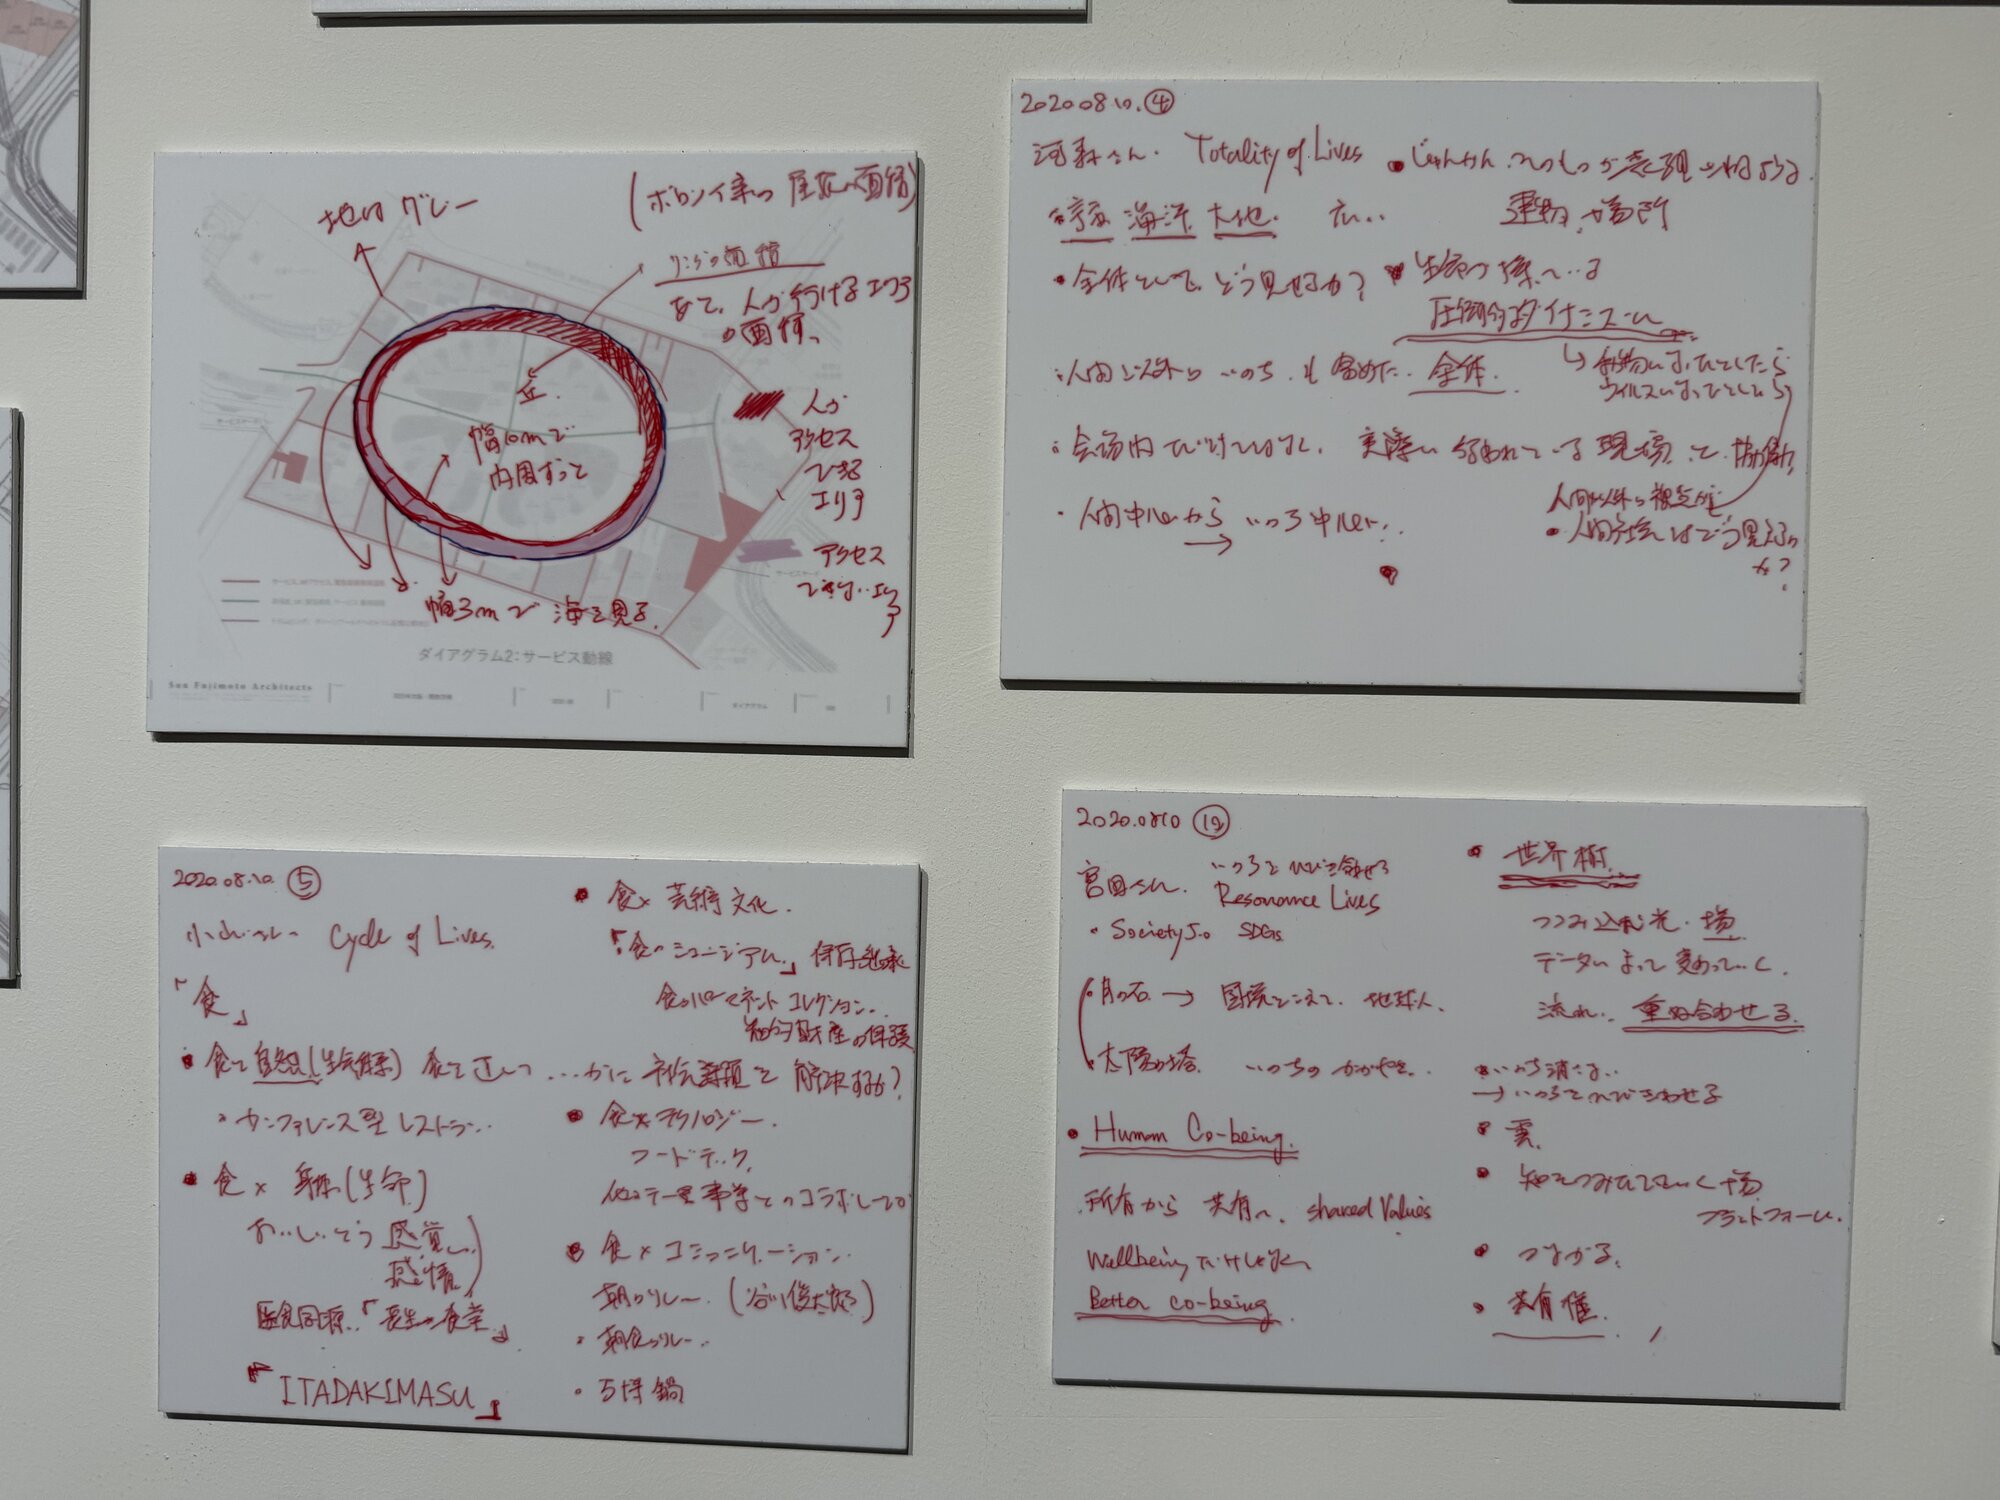 地は グレー
(ボロノイ案の 屋根の面積)
リングの面積
あと、人が行けるエリア
の面積、
丘
幅10mで
内周ずっと
人が
アクセス
できる
エリア
アクセス
できないエリア
幅3mで 海を見る.
ダイアグラム2:サービス動線
Sou Fujimoto Architects
ダイアグラム
2020.08.10. ④
河森さん. Totality of Lives
宇宙 海洋 大地. 広い..
・全体としてどう見せるか?
・人間以外の いのち も 含めた 全体.
・会場内だけではなく、実際に行われている現場 と 協働.
・人間中心から → いのち中心へ.
・じゅんかん、いのちが表現されるような
建物、場所
・生命の
圧倒的なダイナミズム
↳ 動物になったとしたら
ウイルスになったとしたら
人間以外の視点で
・人間社会はどう見えるの
か?
2020.08.10. ⑤
小山さん Cycle of Lives.
「食」
・食と自然(生態系) 食を通して いかに 社会課題を 解決するか?
・カンファレンス型レストラン.
・食×身体(生命)
おいしいという 感覚
感情
医食同源.「養生の食堂」
「ITADAKIMASU」
・食×芸術文化.
「食のミュージアム」保存継承
食のパーマネントコレクション..
知的財産の保護
・食×テクノロジー.
フードテック.
他のテーマ事業とのコラボレーション
・食×コミュニケーション.
朝のリレー.(谷川俊太郎)
・朝食のリレー..
・万博鍋
2020.0810 ⑩
宮田さん. いのちをひびき合わせる
Resonance Lives
・Society5.0 SDGs
月の石 → 国境をこえて. 地球人.
太陽の塔. いのちのかがやき..
・Human Co-being.
所有から 共有へ. shared Values
Wellbeing だけでなく
Better co-being
・世界樹.
つつみ込む光・場
データによって変わっていく.
流れ.. 重ね合わせる.
→ いのちをひびきあわせる
・雲.
・知をつみたてていく場
プラットフォーム.
・つながる.
・共有権.